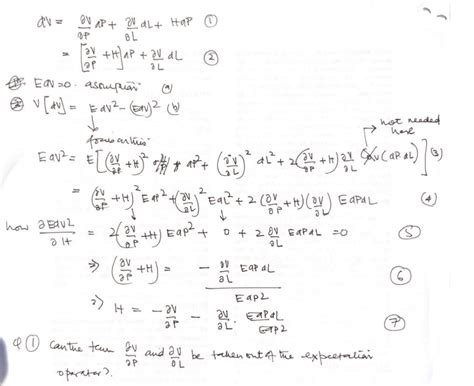 dV = ∂V/∂P dP + ∂V/∂L dL + H dP ①
= [∂V/∂P + H] dP + ∂V/∂L dL ②
E dV = 0. assumption (a)
V[dV] = E dV² − (E dV)² (b)
↓
focus on this
not needed here
E dV² = E[(∂V/∂P + H)² dP² + (∂V/∂L)² dL² + 2(∂V/∂P + H) ∂V/∂L Cov(dP dL)] (3)
= (∂V/∂P + H)² E dP² + (∂V/∂L)² E dL² + 2 (∂V/∂P + H)(∂V/∂L) E dP dL (4)
now ∂E dV²/∂H = 2(∂V/∂P + H) E dP² + 0 + 2 ∂V/∂L E dP dL = 0 ⑤
⇒ (∂V/∂P + H) = − ∂V/∂L E dP dL / E dP2 ⑥
⇒ H = − ∂V/∂P − ∂V/∂L . E dP dL / E dP2 ⑦
Q ① Can the term ∂V/∂P and ∂V/∂L be taken out of the expectation
operator?